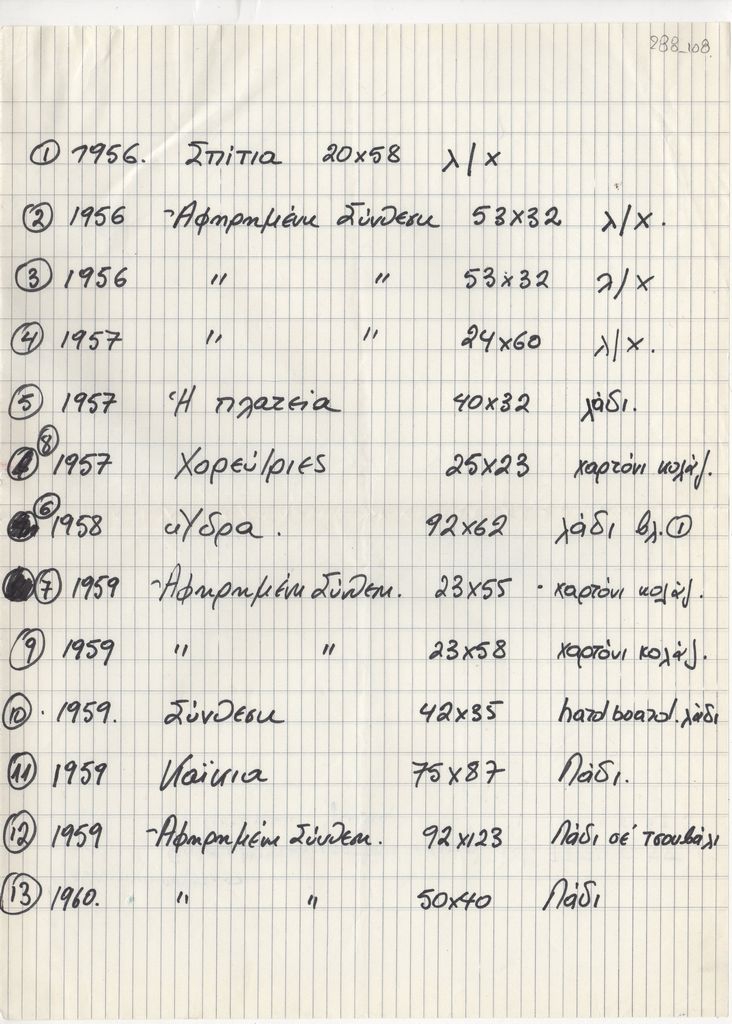 288_108
① 1956. Σπίτια 20x58 λ/χ
② 1956 Ἀφηρημένη Σύνθεση 53x32 λ/χ.
③ 1956 〃 〃 53x32 λ/χ
④ 1957 〃 〃 24x60 λ/χ.
⑤ 1957 Ἡ πλατεία 40x32 λάδι.
⑧ 1957 Χορεύτριες 25x23 χαρτόνι κολάζ.
⑥ 1958 Ὕδρα. 92x62 λάδι βλ. ①
⑦ 1959 Ἀφηρημένη Σύνθεση. 23x55 · χαρτόνι κολάζ.
⑨ 1959 〃 〃 23x58 χαρτόνι κολάζ.
⑩ · 1959. Σύνθεση 42x35 hardboard. λάδι
⑪ 1959 Καΐκια 75x87 Λάδι.
⑫ 1959 Ἀφηρημένη Σύνθεση. 92x123 Λάδι σέ τσουβάλι
⑬ 1960. 〃 〃 50x40 Λάδι